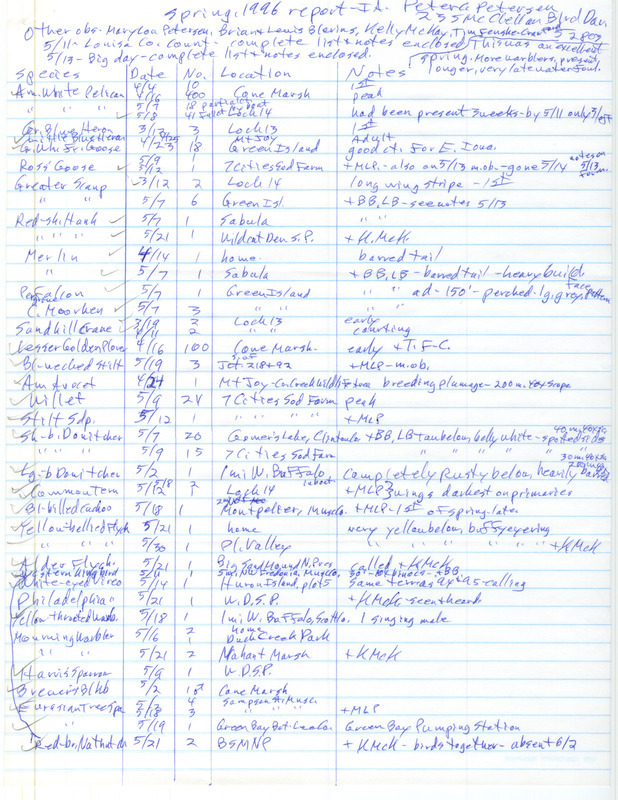 Spring, 1996 report - Ia. Peter C. Petersen
235 McClellan Blvd Dav.
Other obs. Mary Lou Petersen, Brian & Lewis Blevins, Kelly McKay, Tim Fenske-Crawford 52803
5/11 - Louisa Co. count - complete list & notes enclosed. This was an excellent
5/13 - Big day - complete list & notes enclosed. spring. More warblers, present
longer, very late waterfowl.
Species Date No. Location Notes
Am. White Pelican 4/4 10 1st
4/16 400 Cone Marsh peak
5/7 18
5/8 41 Lock 14 had been present 3 weeks - by 5/11 only 3 left
Gr. Blue Heron 3/13 3 Lock 13 1st
Little Blue Heron 4/25 1 Mt Joy Adult
Gr. Wh. Fr. Goose 4/23 18 Green Island good ct. for E. Iowa.
Ross' Goose 5/9 1
5/12 1 7 Cities Sod Farm + MLP - also on 5/13 m.ob - gone 5/14 notes on 5/13
Greater Scaup 3/12 2 Lock 14 long wing stripe - 1st
" " 5/7 6 Green Isl. + BB, LB - see notes 5/13
Red-sh. Hawk 5/7 1 Sabula " "
" " " 5/21 1 Wildcat Den S.P. + K. McK.
Merlin 4/14 1 home barred tail
" 5/7 1 Sabula + BB, LB - barred tail - heavy build
Per. Falcon 5/7 1 Green Island " " ad - 150' - perched - lg, grey, face pattern
C. Moorhen 5/7 3 " " "
Sandhill Crane 3/19 2 Lock 13 early
4/11 2 courting
Lesser Golden Plover 4/16 100 Cone Marsh. early + T.F-C.
Bl-necked Stilt 5/19 3 Jct 218 + 92 + MLP - m.ob.
Am Avocet 4/24 1 Mt Joy - breeding plumage - 200 m. 40x scope
Willet 5/9 24 7 Cities Sod Farm peak
Stilt Sdp. 5/12 1 " " " " + MLP
Sh-bi Dowitcher 5/7 20 Gomers Lake, Clinton Co + BB, LB Tau below, belly white - spotted sides
40 m. 40x
" " 5/9 15 7 Cities " " " "
30 m. 40x
Lg-b Dowitcher 5/2 1 1 mi W. Buffalo Completely rusty below, heavily barred
Common Tern 5/12 5/18 2 1 Lock 14 + MLP wings darkest on primaries
Bl-billed Cuckoo 5/18 1 Montpelier, Musc. Co. + MLP - 1st of spring - late
Yellow-bellied Flyc 5/21 1 home very yellow below, buffy eye ring
" " 5/30 1 Pl. Valley " " " " + KMcK
Alder Flyc. 5/21 1 Big Sand Mound N. Pres. called, + KMcK
Western Kingbird
White-eyed Vireo 5/14 1 Huron Island, plot 5 same terr. as 94 & 95 - calling
Philadelphia " 5/21 1 W.D.S.P. + KMcK - seen + heard
Yellow throated Warb. 5/18 1 1 mi W. Buffalo, Scott Co. 1 singing male
Mourning Warbler 5/16 2 home
1 Duck Creek Park
" " 5/21 2 Nahant Marsh + KMcK
Harris Sparrow 5/9 1 W.D.S.P.
Brewer's Blkb 5/2 1♂ Cone Marsh
Eurasian Tree Spa 5/3 4 Sampson St. Musc.
" " 5/18 3 " " " + MLP
" 5/19 1 Green Bay Bot. Lee Co. Green Bay Pumping Station
Red-br. Nuthatch 5/21 2 BSMNP + KMcK - birds together - absent 6/2